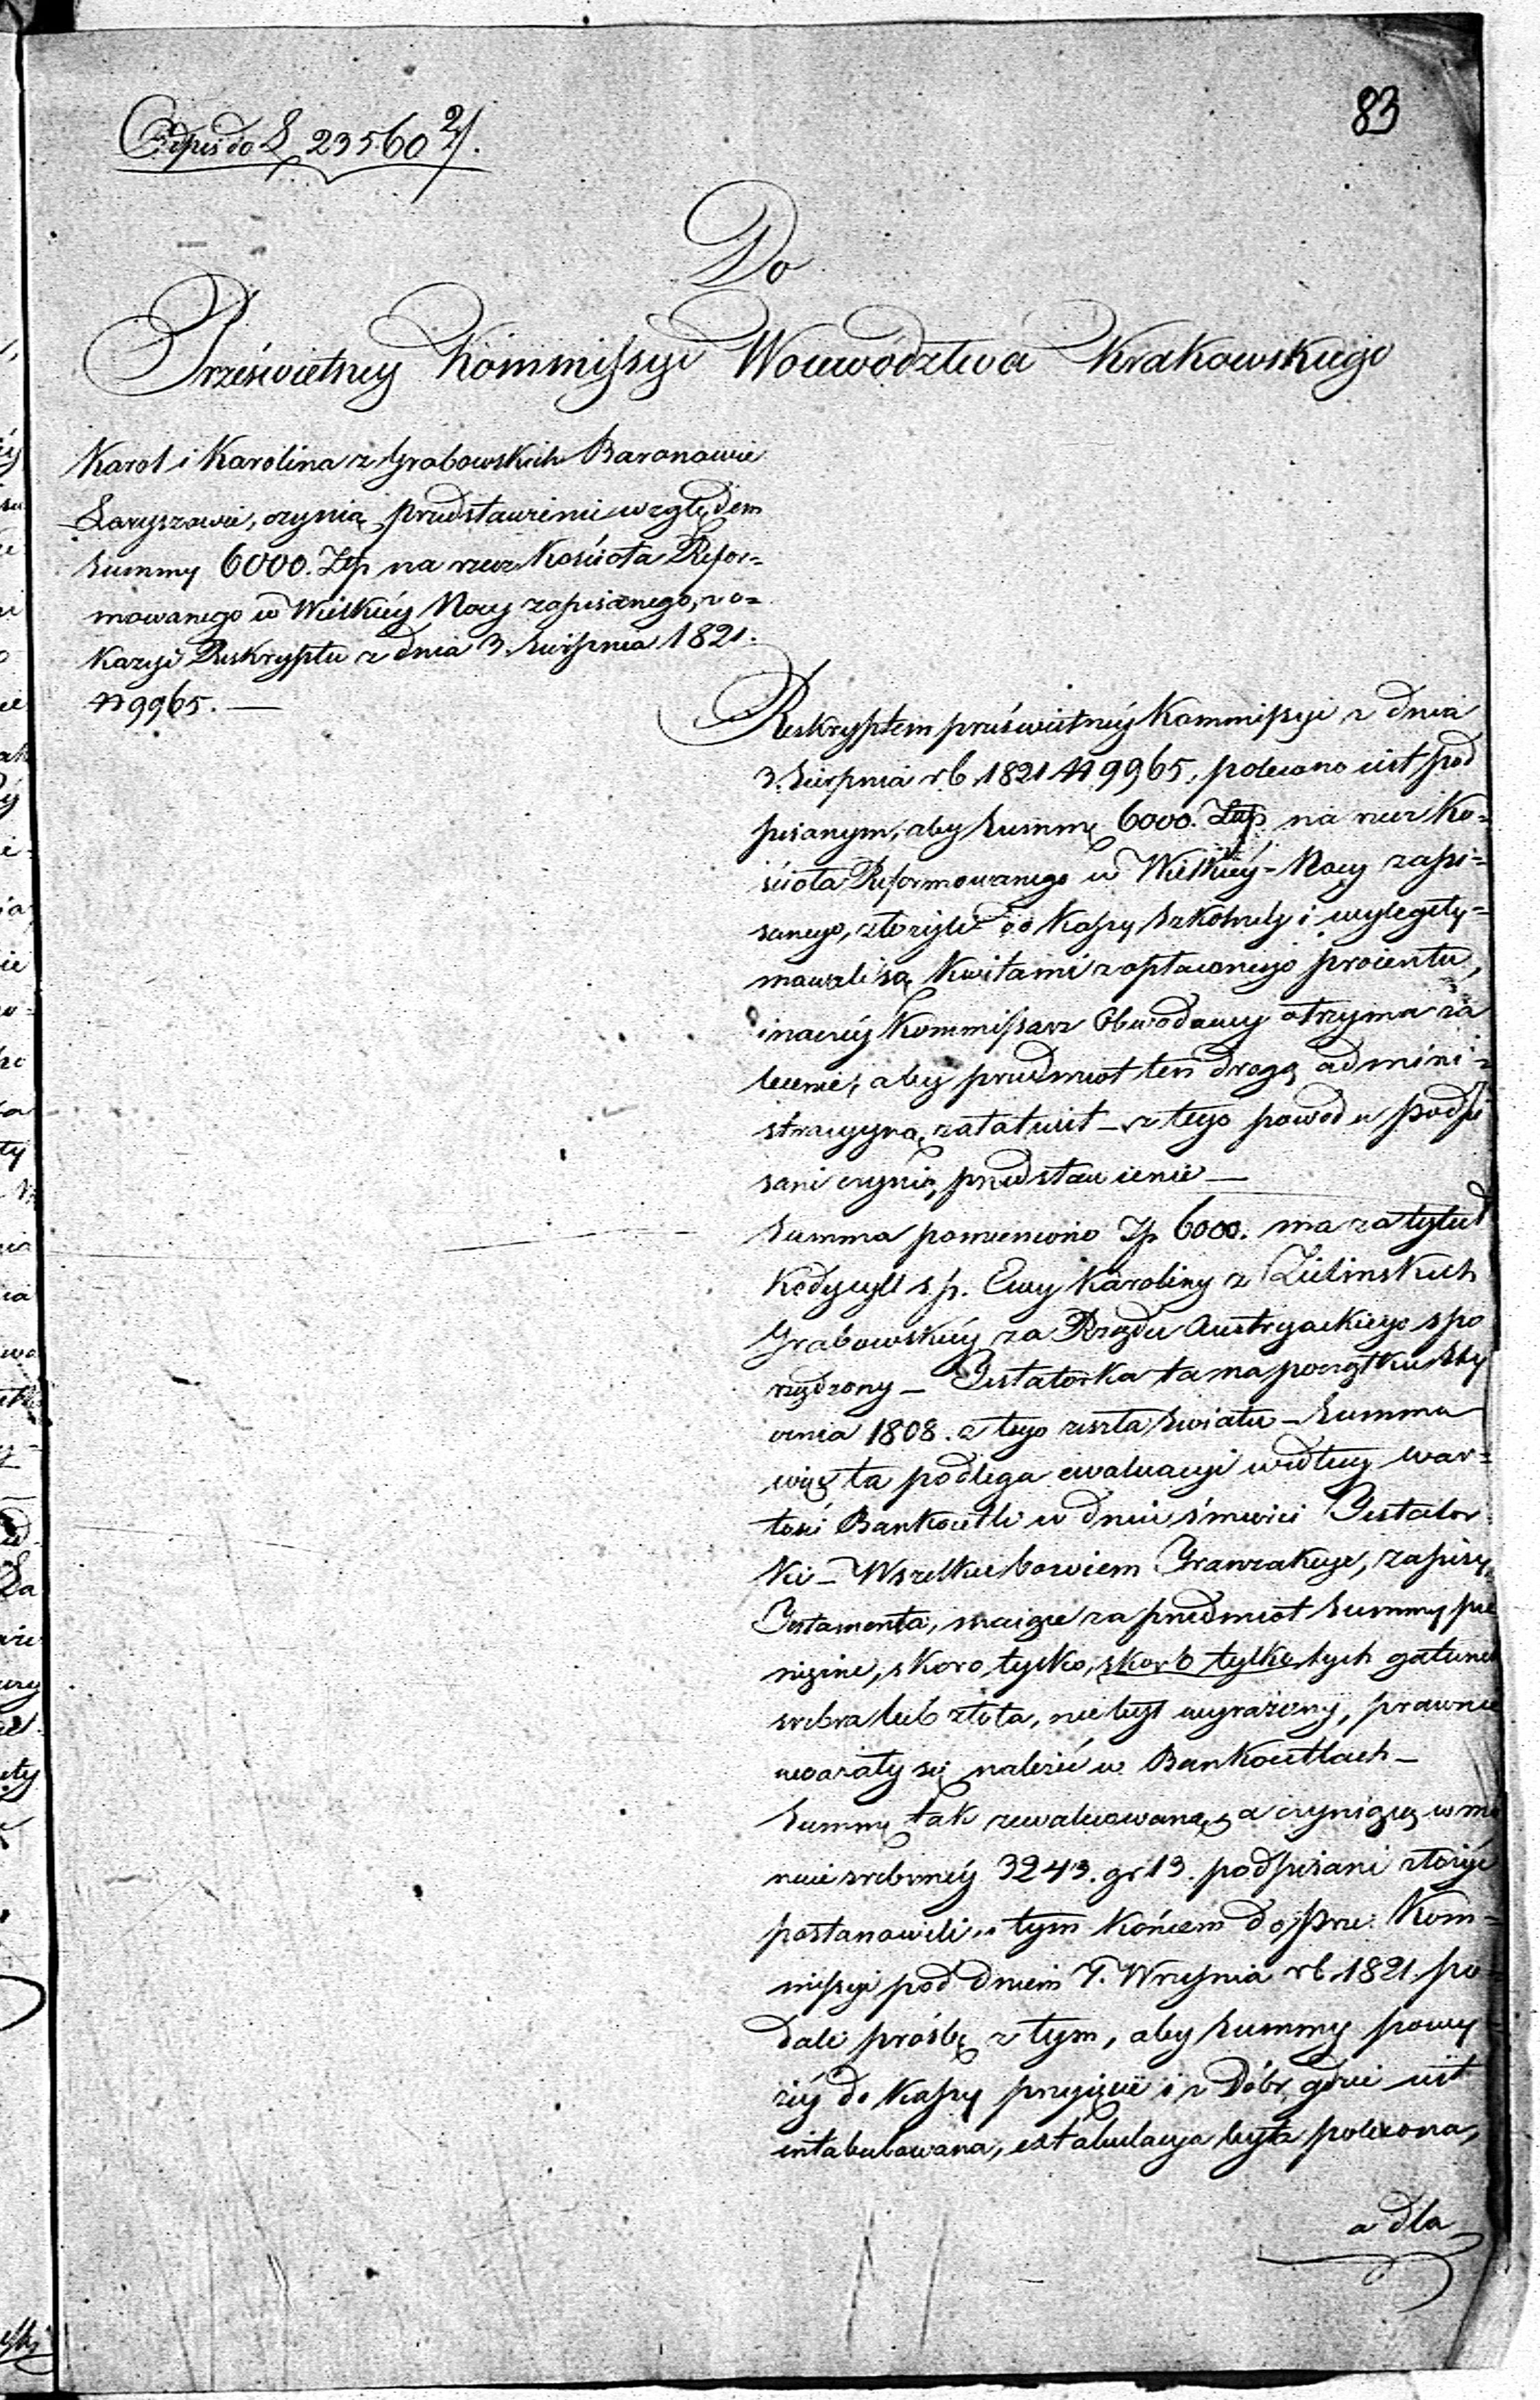 83
Odpis do L 23560 2/.
Do
Prześwietney Kommissyi Woiewództwa Krakowskiego
Karol i Karolina z Grabowskich Baronowie
Laryszowie, czynią przedstawienie względem
Summy 6000. Złp na rzecz Kościoła Refor=
mowanego w Wielkiéy Nocy zapisanego, z o=
kazyi Reskryptu z dnia 3. Sierpnia 1821.
N 9965. —
Reskryptem prześwietnéy Kommissyi z dnia
3. Sierpnia r.b. 1821 N 9965, polecono iest pod
pisanym, aby Summę 6000. Złp. na rzecz Ko=
ścioła Reformowanego w Wielkiéy=Nocy zapi=
sanego, złożyli do Kassy Szkolnéy i wylegity=
mowali się Kwitami z opłaconego procentu,
inaczéy Kommissarz Obwodowy otrzyma za
lecenie, aby przedmiot ten drogą admini=
stracyyną załatwił — z tego powodu podpi
sani czynią przedstawienie —
Summa pomieniona Zp 6000. ma za tytuł
Kodycyll s.p. Ewy Karoliny z Zielinskich
Grabowskiéy za Rządu Austryackiego spo
rządzony — Testatorka ta na początku Sty
cznia 1808. z tego zeszła Świata — Summa
więc ta podlega ewaluacyi według war=
tości Bankocetli w dniu śmierci Testator
ki — Wszelkie bowiem Tranzakcye, zapisy,
Testamenta, maiące za przedmiot Summy pie
niężne, skoro tylko, skoro tylko tych gatunek
srebra lub złota, nie był wyrażony, prawnie
uważały się należeć w Bankocetlach —
Summę tak zewaluowaną, a czyniącą w mo
necie srebrnéy 3243. gr 13. podpisani złożyć
postanowili i tym końcem do prze: Kom=
missyi pod dniem 7. Września r.b. 1821. po=
dali prośbę z tym, aby Summy powy
żéy do Kassy przyięcie i z Dóbr, gdzie iest
intabulowana, extabulacya była polecona,
a dla